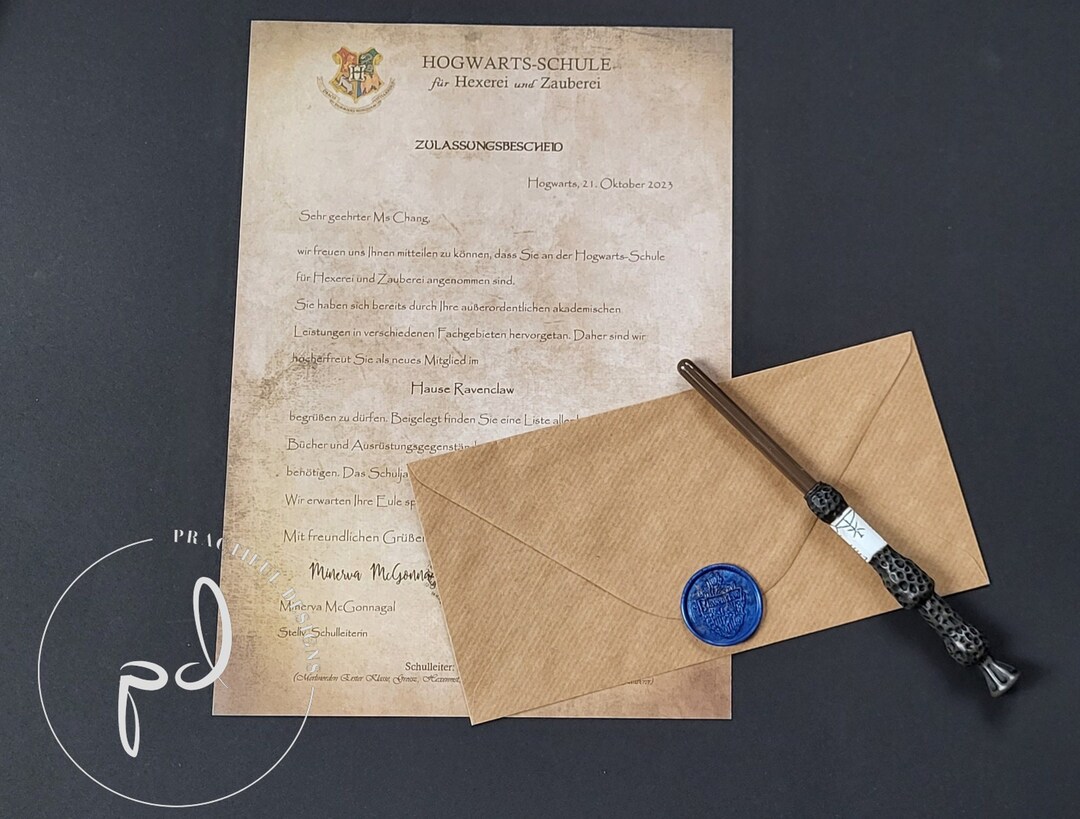 HOGWARTS-SCHULE
für Hexerei und Zauberei
ZULASSUNGSBESCHEID
Hogwarts, 21. Oktober 2023
Sehr geehrter Ms Chang,
wir freuen uns Ihnen mitteilen zu können, dass Sie an der Hogwarts-Schule
für Hexerei und Zauberei angenommen sind.
Sie haben sich bereits durch Ihre außerordentlichen akademischen
Leistungen in verschiedenen Fachgebieten hervorgetan. Daher sind wir
hocherfreut Sie als neues Mitglied im
Hause Ravenclaw
begrüßen zu dürfen. Beigelegt finden Sie eine Liste
Bücher und
behötigen. Das
Wir erwarten Ihre Eule
Mit freundlichen
Minerva
Minerva McGonnagal
Stellv. Schulleiterin
Schulleiter:
(Merlinorden Erster Klasse, Großz., Hexenmst.
pd
DESIGNS